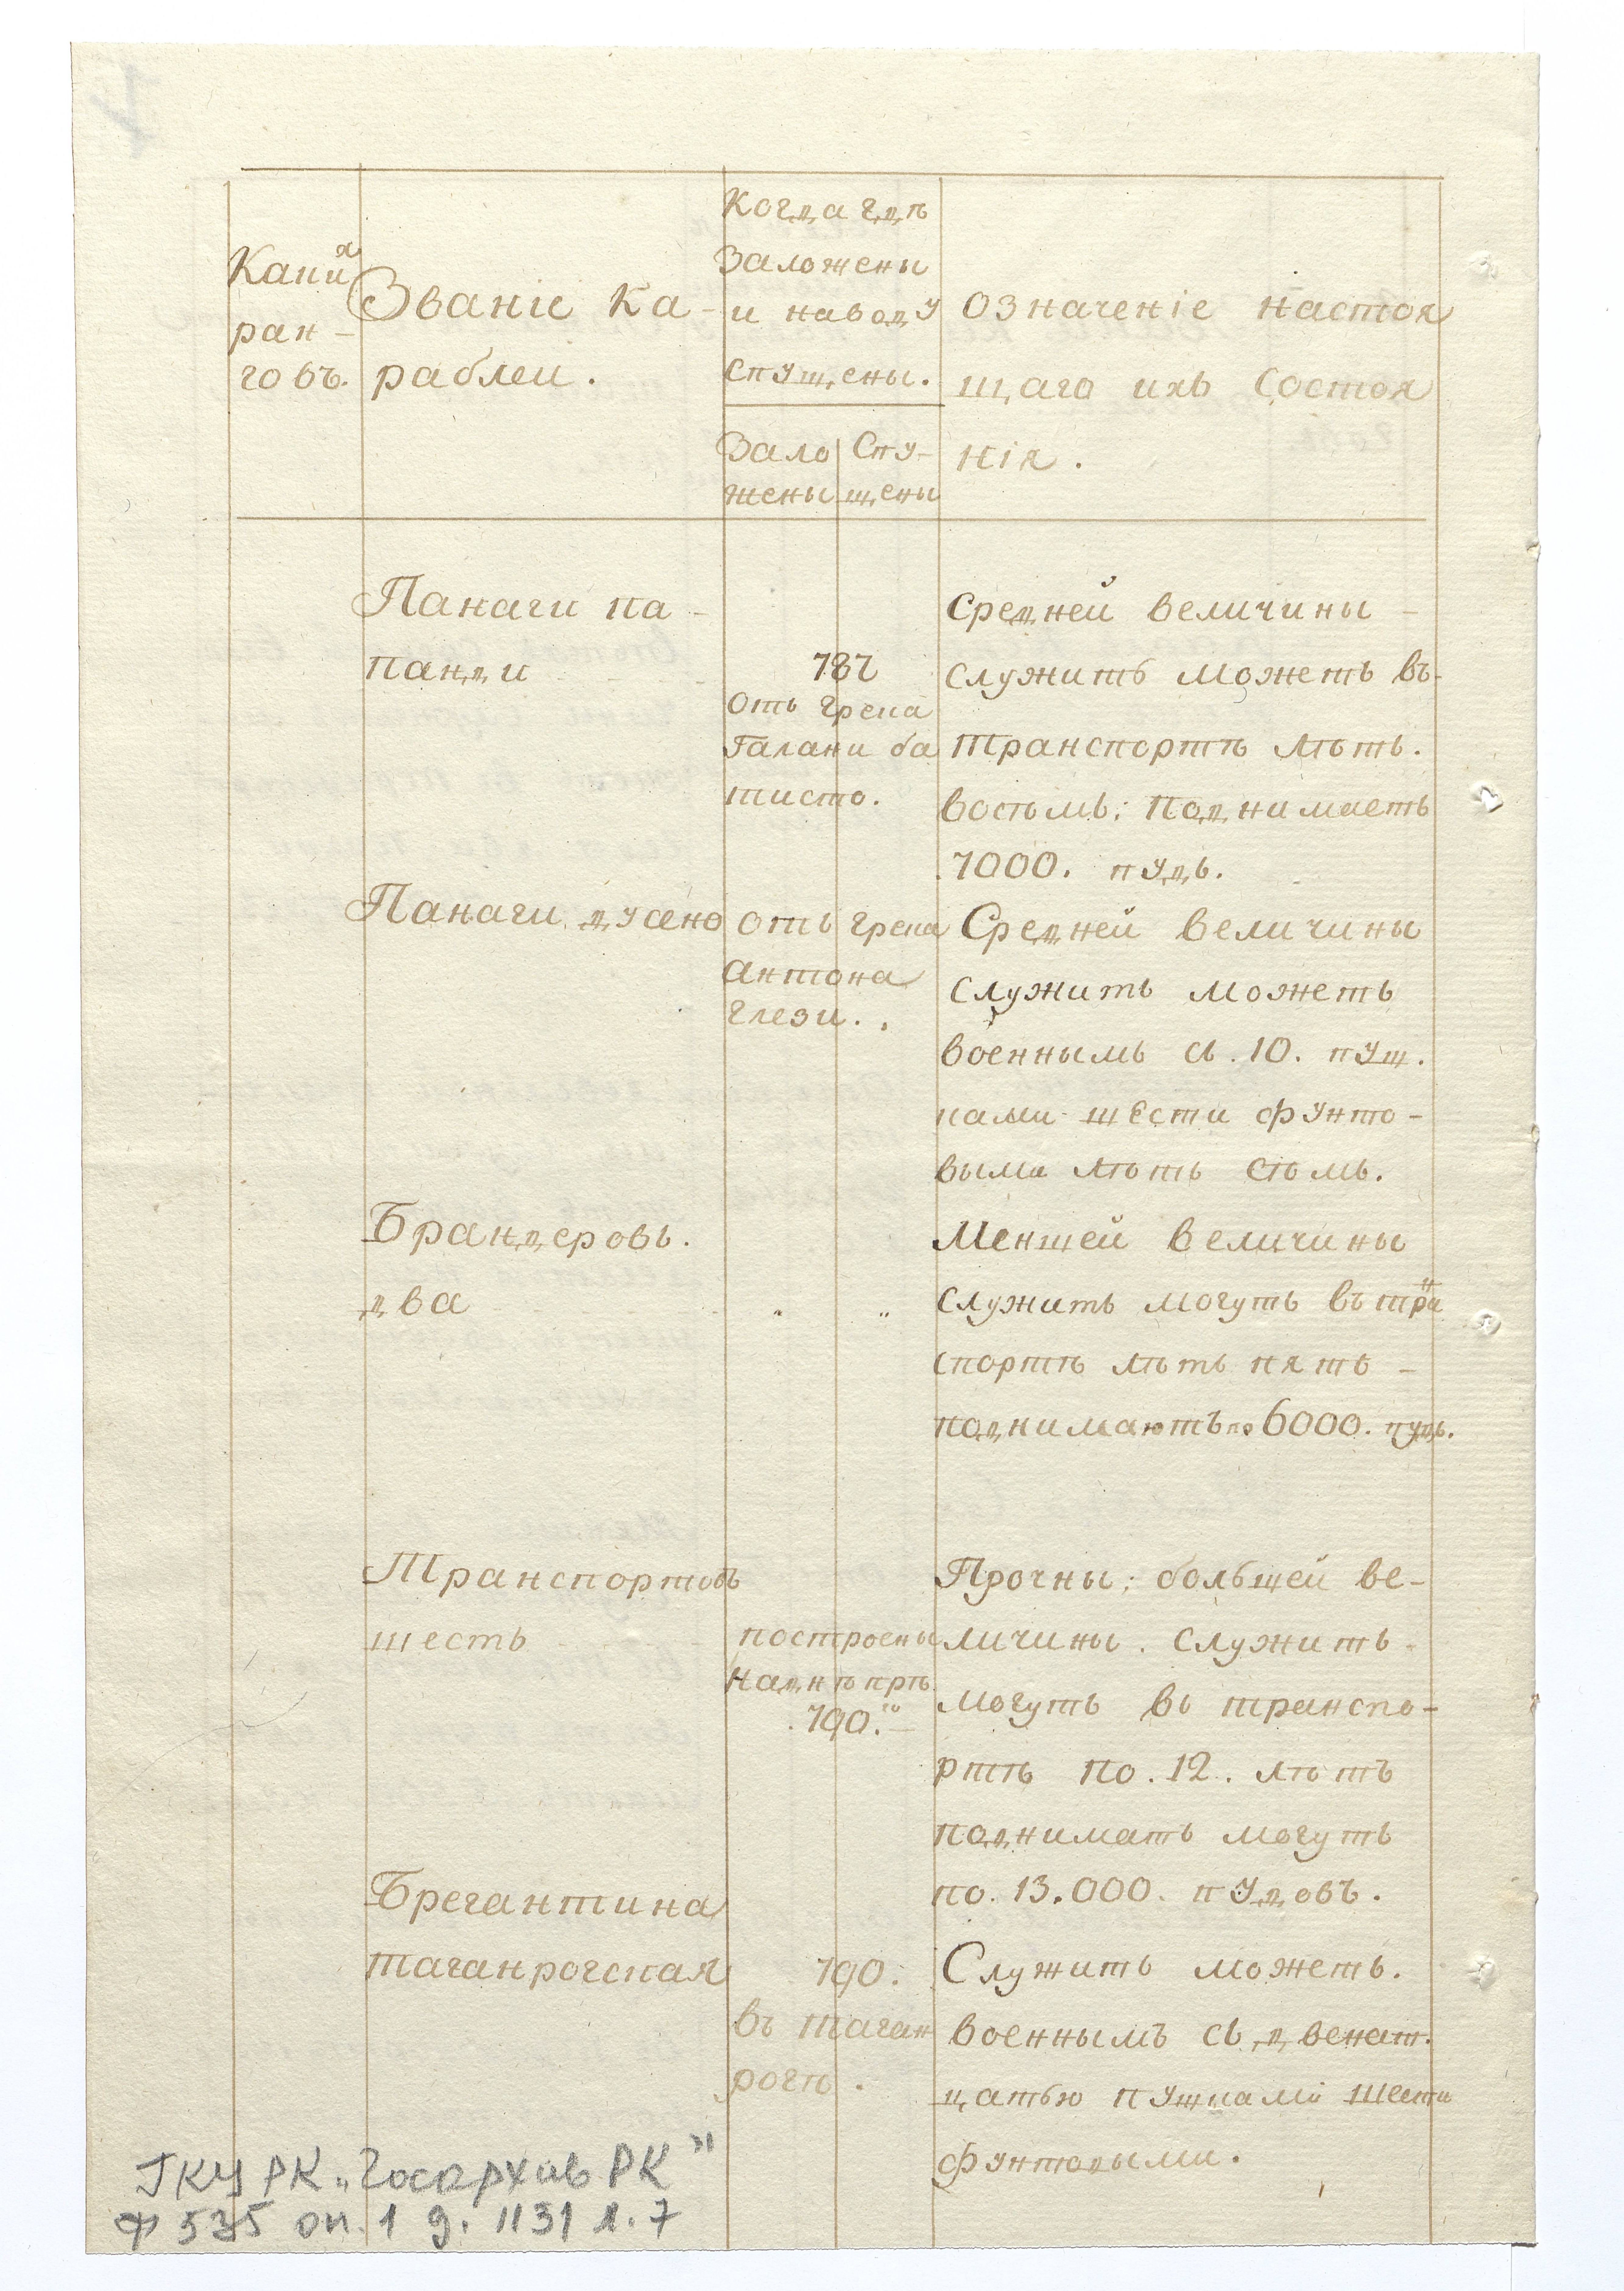 Какихъ
ран-
говъ.
Званіе ка-
раблеи.
Когда гдѣ
заложены
и наводу
спущены.
Зало
жены
Спу-
щены
Означеніе настоя
щаго ихъ состоя
нія.
Панаги па-
панди
787
отъ грека
Галани ба
тисто.
Средней величины
служить можетъ въ-
транспортѣ лѣтъ.
восѣмь; поднимаетъ
7000. пудъ.
Панаги дусено
отъ грека
Антона
Глези.
Средней величины
служить можетъ
военнымъ съ. 10. пуш.
ками шести фунто-
выми лѣтъ сѣмь.
Брандеровъ.
два
Меншей величины
служить могутъ въ тран
спортѣ лѣтъ пять -
поднимаютъ по 6000. пудъ.
Транспортовъ
шесть
построены
на днѣпрѣ
790.го
Прочны; большей ве-
личины. служить
могутъ въ транспо-
ртѣ по. 12. лѣтъ
поднимать могутъ
по. 13.000. пудовъ.
Брегантина
таганрогская
790.
въ таган
рогѣ.
Служить можетъ.
военнымъ съ двенат.
цатью пушками шести
фунтовыми.
ГКУ РК „Госархив РК"
Ф 535 оп. 1 д. 1131 л. 7